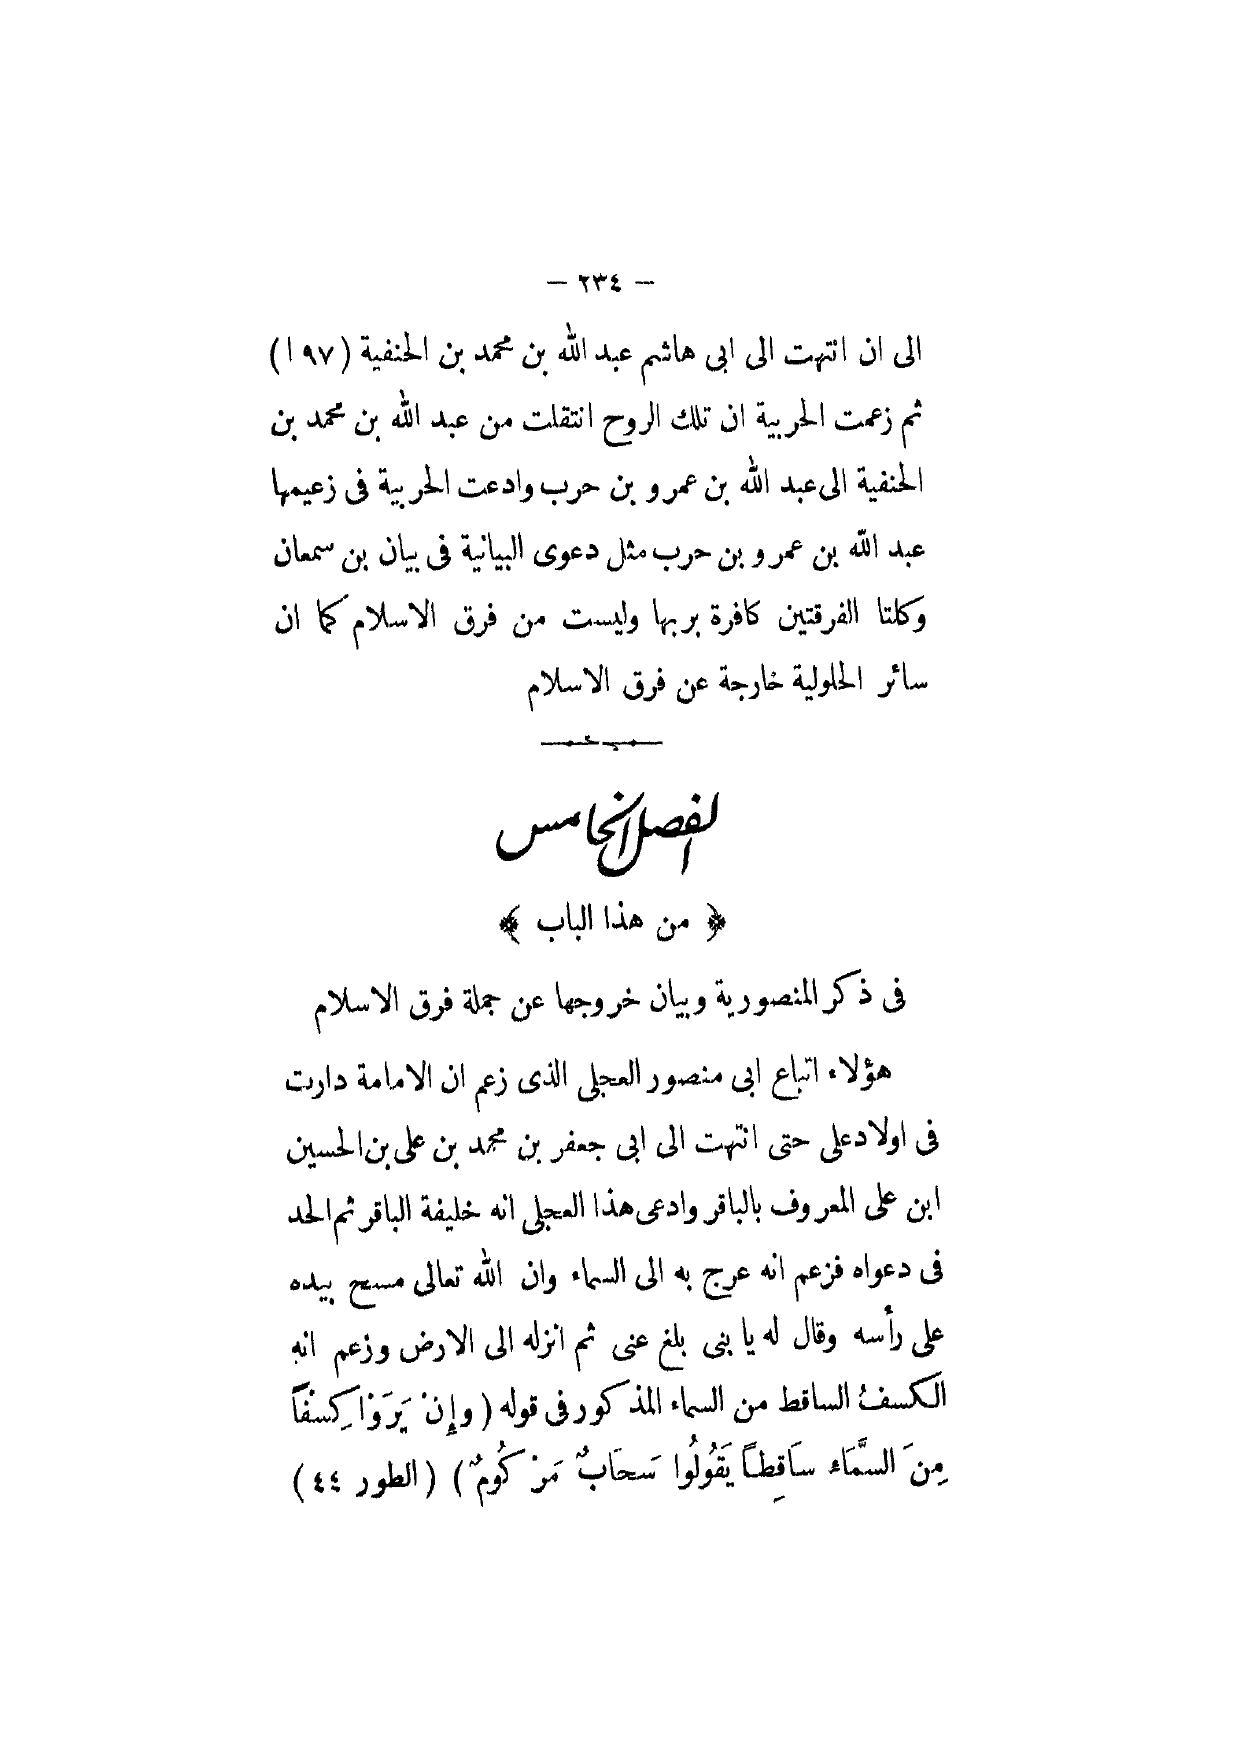 — ٢٣٤ —
الى ان انتهت الى ابى هاشم عبد الله بن محمد بن الحنفية (٩٧ ا)
ثم زعمت الحربية ان تلك الروح انتقلت من عبد الله بن محمد بن
الحنفية الى عبد الله بن عمرو بن حرب وادعت الحربية فى زعيمها
عبد الله بن عمرو بن حرب مثل دعوى البيانية فى بيان بن سمعان
وكلتا الفرقتين كافرة بربها وليست من فرق الاسلام كما ان
سائر الحلولية خارجة عن فرق الاسلام
الفصل الخامس
﴿ من هذا الباب ﴾
فى ذكر المنصورية وبيان خروجها عن جملة فرق الاسلام
هؤلاء اتباع ابى منصور العجلى الذى زعم ان الامامة دارت
فى اولاد على حتى انتهت الى ابى جعفر بن محمد بن على بن الحسين
ابن على المعروف بالباقر وادعى هذا العجلى انه خليفة الباقر ثم الحد
فى دعواه فزعم انه عرج به الى السماء وان الله تعالى مسح بيده
على رأسه وقال له يا بنى بلغ عنى ثم انزله الى الارض وزعم انه
الكسفُ الساقط من السماء المذكور فى قوله ( وإِنْ يَرَوْا كِسْفًا
مِنَ السَّمَاء سَاقِطاً يَقُولُوا سَحَابٌ مَرْكُومٌ ) ( الطور ٤٤ )